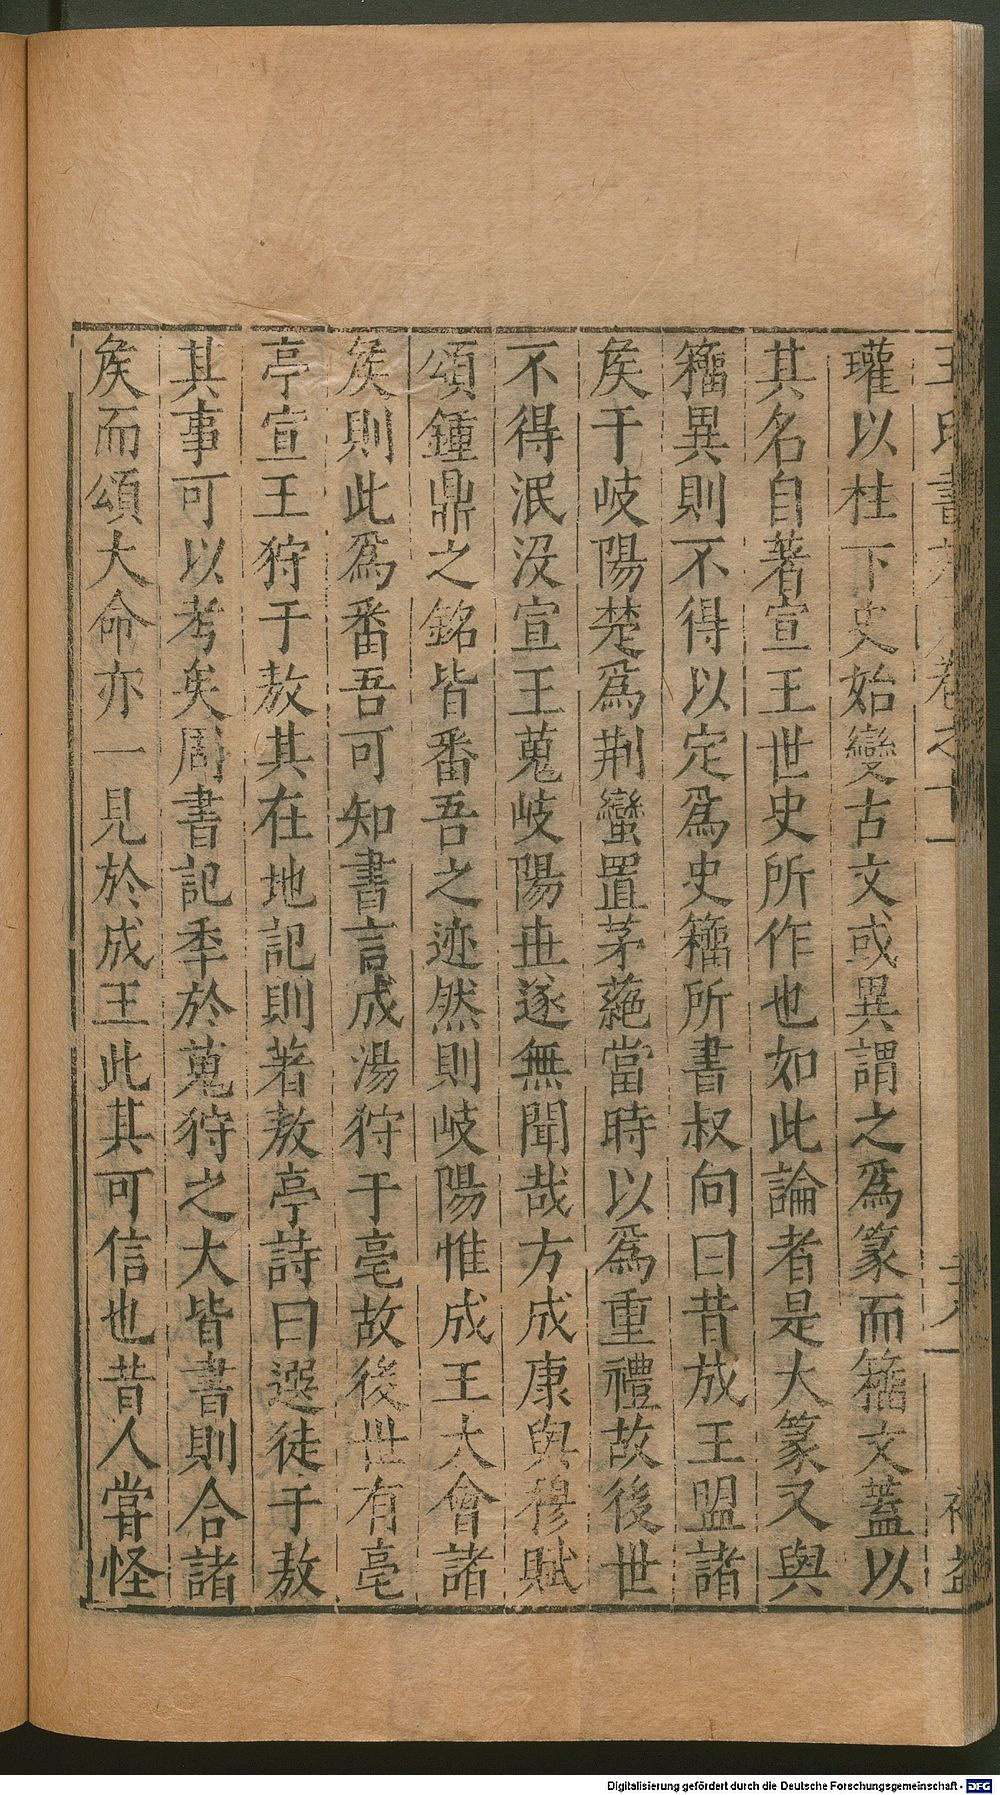 瓘以柱下史始變古文或異謂之爲篆而籀文蓋以
其名自著宣王世史所作也如此論者是大篆又與
籀異則不得以定爲史籀所書叔向曰昔成王盟諸
矦于岐陽楚爲荆蠻置茅蕝當時以爲重禮故後世
不得泯没宣王蒐岐陽世遂無聞哉方成康與穆賦
頌鍾鼎之銘皆番吾之迹然則岐陽惟成王大會諸
矦則此爲番吾可知書言成湯狩于亳故後世有亳
亭宣王狩于敖其在地記則著敖亭詩曰選徒于敖
其事可以考矣周書記季於蒐狩之大皆書則合諸
矦而頌大命亦一見於成王此其可信也昔人甞怪
Digitalisierung gefördert durch die Deutsche Forschungsgemeinschaft - DFG